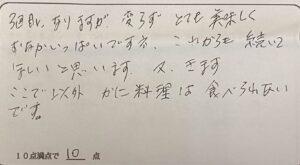 3回目になりますが 変らず とても美味しく
おなかいっぱいです。 これからも 続いて
ほしいと思います 又、きます
ここで以外 かに料理は食べられない
です。
10点満点で 10 点